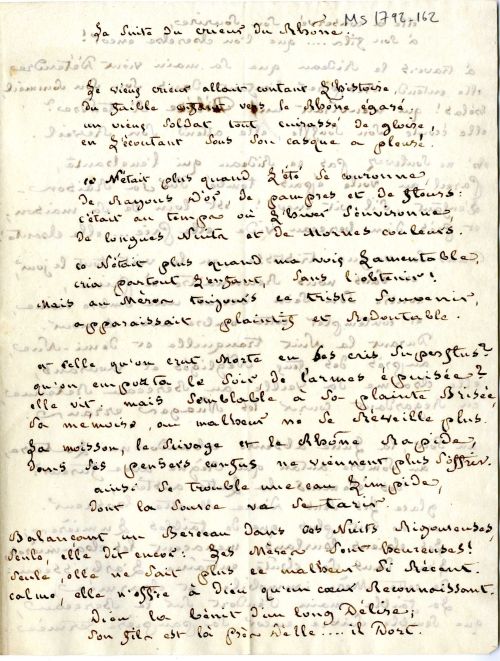 MS 1792-162
La Suite du crieur du Rhône.
Le vieux crieur allait contant L'histoire,
Du faible enfant vers le Rhône égaré.
un vieux Soldat tout cuirassé de gloire,
en L'écoutant sous son casque a pleuré.
ce N'était plus quand L'été se couronne
de Rayons D'or de pampres et de fleurs:
c'était au temps où L'hiver S'environne,
de Longues Nuits et de Mornes couleurs.
ce N'était plus quand ma voix Lamentable,
cria partout L'enfant, Sans L'obtenir!
Mais au Mères toujours ce triste Souvenir,
apparaissait plaintif et Redoutable.
et celle qu'on crut Morte en ses cris Superflus?
qu'on emporta le Soir, de Larmes épuisée?
elle vit, mais Semblable à Sa plainte Brisée
Sa mémoire, au malheur ne se Réveille plus.
La moisson, le Rivage et le Rhône Rapide,
Dans Ses pensers confus ne viennent plus S'offrir.
ainsi se trouble une eau Limpide,
dont la Source va se tarir.
Balançant un Berceau Dans ces Nuits Rigoureuses,
Seule, elle dit encor: Les Mères Sont heureuses!
Seule, elle ne Sait plus ce malheur Si Récent.
calme, elle n'offre à Dieu qu'un cœur Reconnaissant.
Dieu la bénit D'un long Délire;
Son fils est là près D'elle.... il Dort.